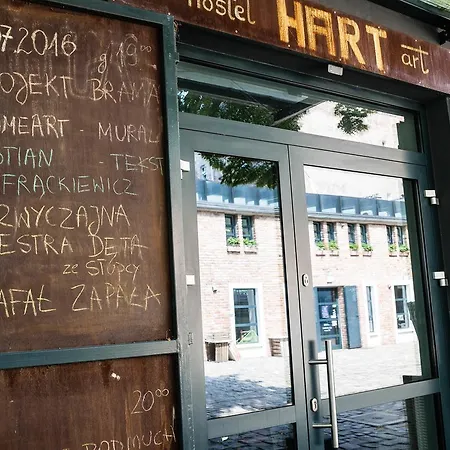 hostel HART art
7.2016 g 19⁰⁰
ROJEKT BRAMA
MEART - MURAL
TIAN - TEKST
FRĄCKIEWICZ
ZWYCZAJNA
ESTRA DĘTA
ze Stopcy
AFAŁ ZAPAŁA
20⁰⁰